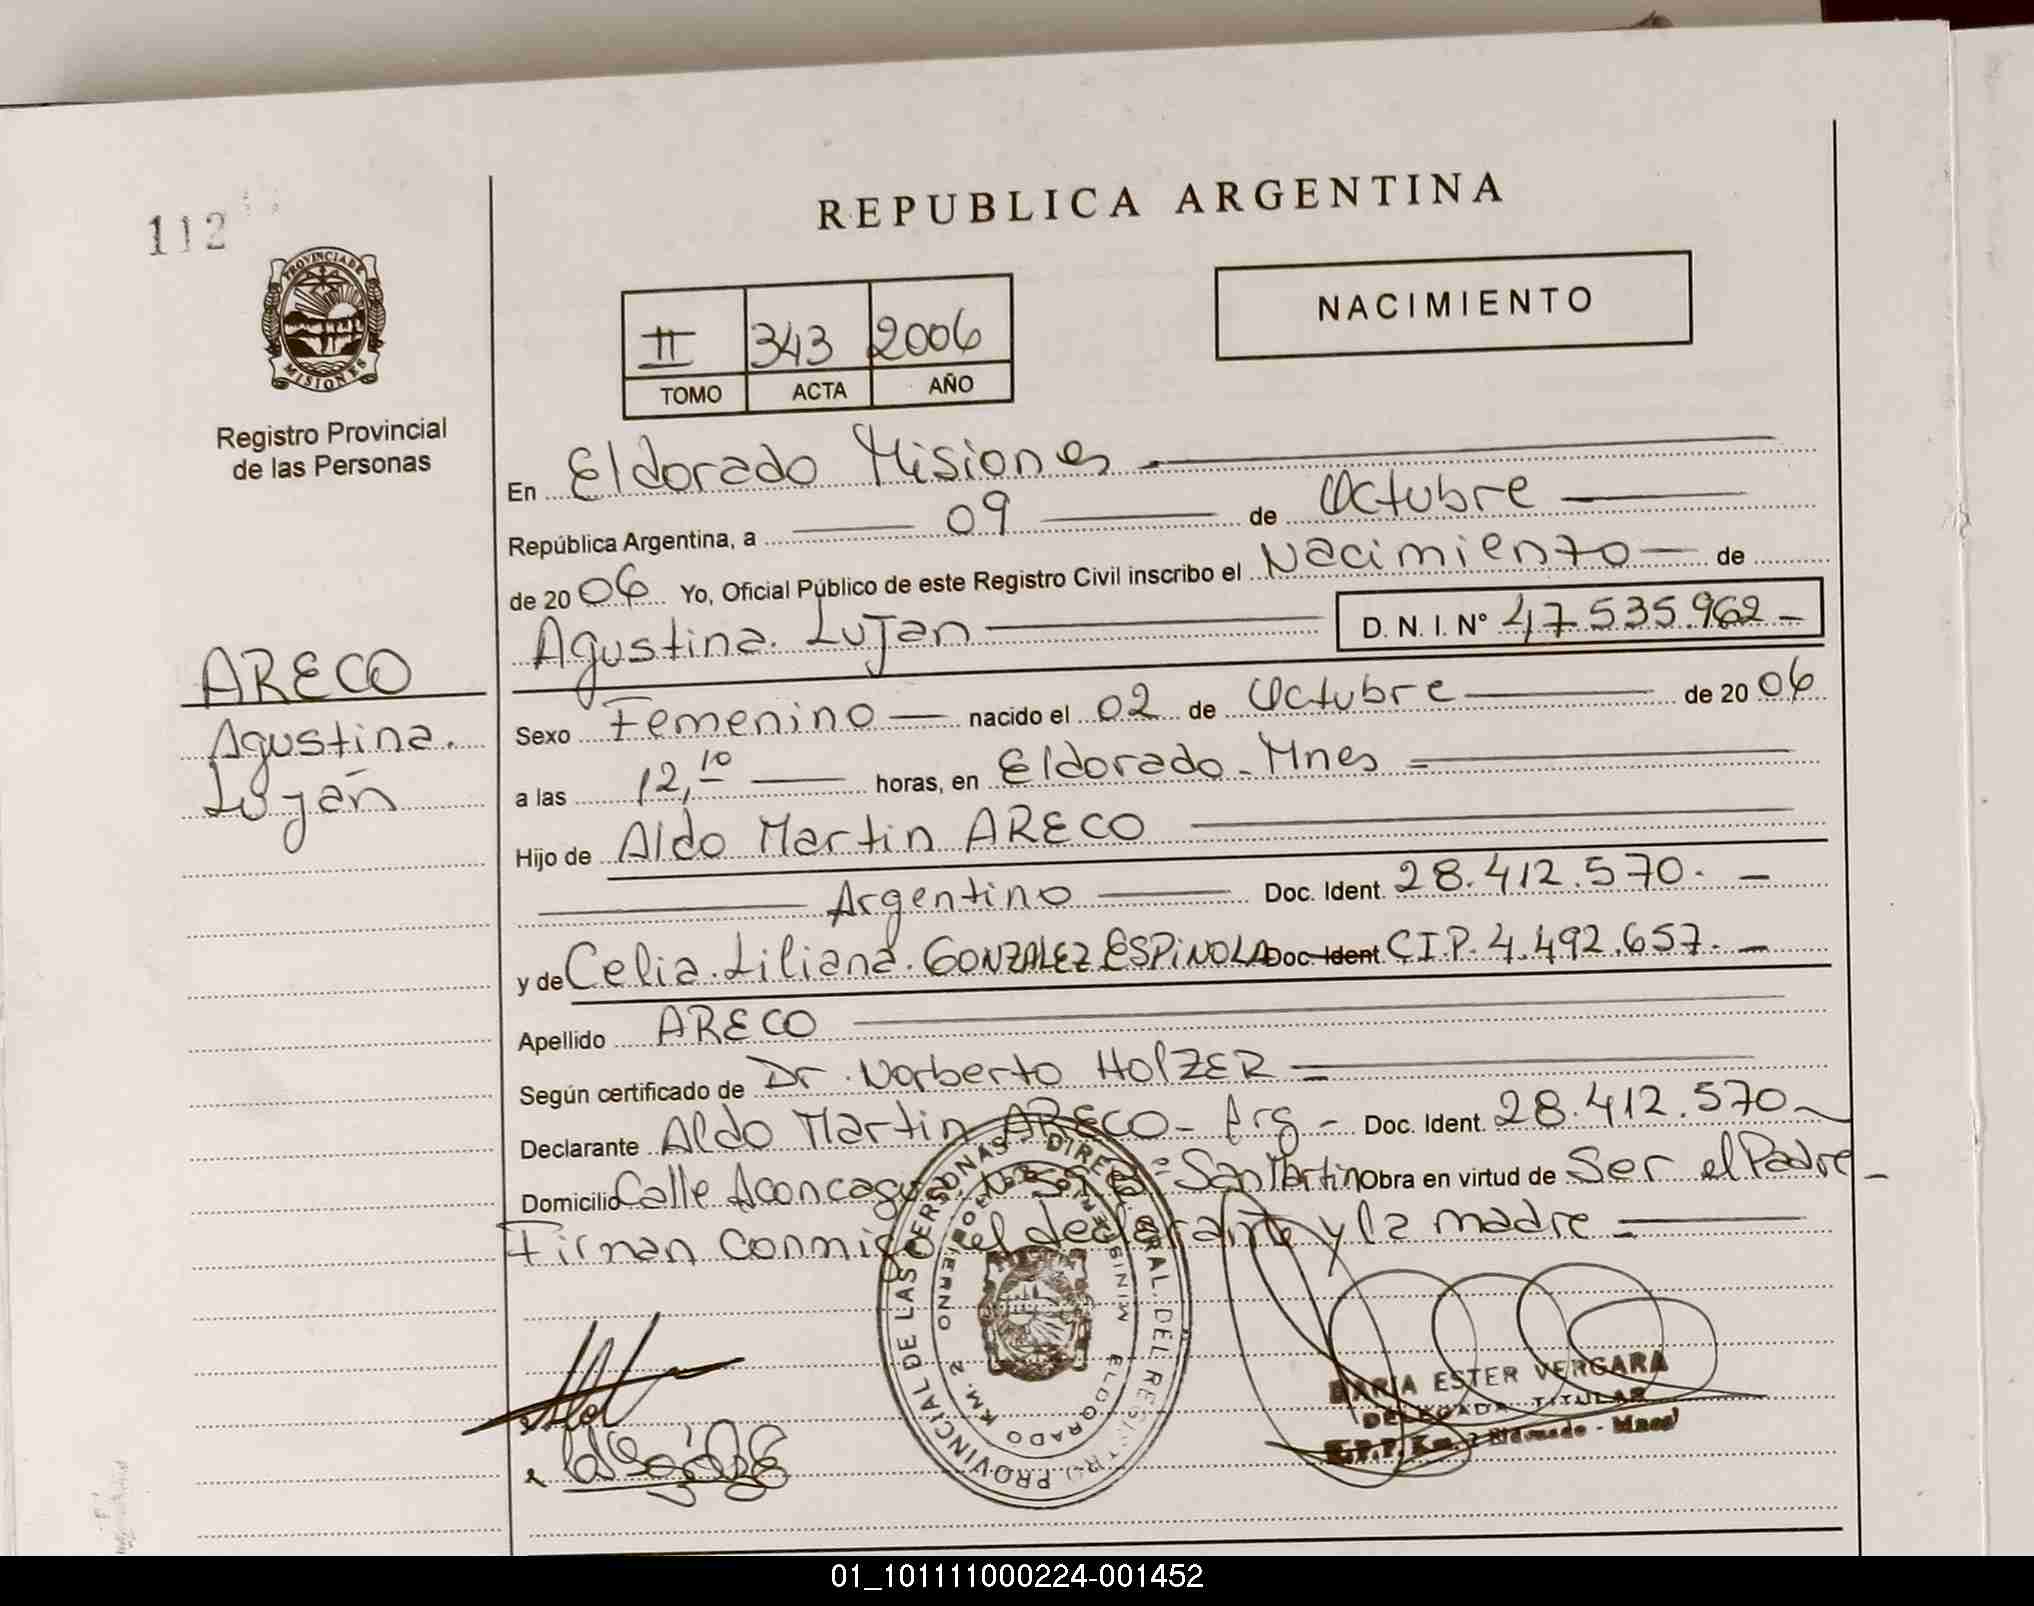 112
REPUBLICA ARGENTINA
PROVINCIA DE MISIONES
Registro Provincial
de las Personas
II 343 2006
TOMO ACTA AÑO
NACIMIENTO
En Eldorado Misiones
República Argentina, a 09 de Octubre
de 2006 Yo, Oficial Público de este Registro Civil inscribo el Nacimiento de
Agustina Lujan D. N. I. N° 47.535.962
ARECO
Agustina
Luján
Sexo Femenino nacido el 02 de Octubre de 2006
a las 12,10 horas, en Eldorado - Mnes
Hijo de Aldo Martin ARECO
Argentino Doc. Ident. 28.412.570.
y de Celia Liliana GONZALEZ ESPiNOLA Doc. Ident C.I.P. 4.492.657.
Apellido ARECO
Según certificado de Dr. Norberto HOLZER
Declarante Aldo Martin ARECO - Arg - Doc. Ident. 28.412.570
Domicilio Calle Aconcagua San Martin Obra en virtud de Ser el Padre
Firman conmigo el declarante y la madre
PROVINCIAL DE LAS PERSONAS - DIREC GRAL. DEL REGISTRO
GOBIERNO KM. 2 ELDORADO
MARIA ESTER VERGARA
DELEGADA TITULAR
R.P.P. Km. 2 Eldorado - Mnes
01_101111000224-001452